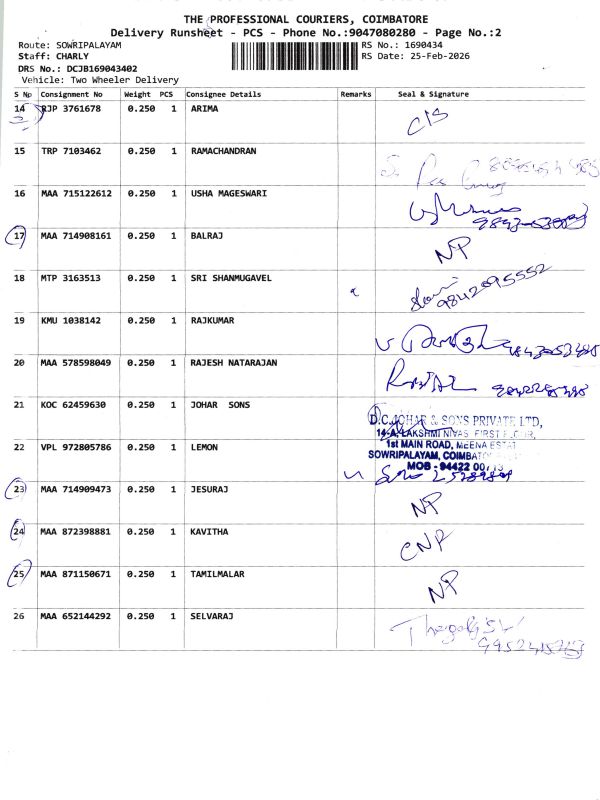 THE PROFESSIONAL COURIERS, COIMBATORE
Delivery Runsheet - PCS - Phone No.:9047080280 - Page No.:2
Route: SOWRIPALAYAM
RS No.: 1690434
Staff: CHARLY
RS Date: 25-Feb-2026
DRS No.: DCJB169043402
Vehicle: Two Wheeler Delivery
S No Consignment No Weight PCS Consignee Details Remarks Seal & Signature
14 RJP 3761678 0.250 1 ARIMA
15 TRP 7103462 0.250 1 RAMACHANDRAN
16 MAA 715122612 0.250 1 USHA MAGESWARI
17 MAA 714908161 0.250 1 BALRAJ NP
18 MTP 3163513 0.250 1 SRI SHANMUGAVEL 9842095552
19 KMU 1038142 0.250 1 RAJKUMAR
20 MAA 578598049 0.250 1 RAJESH NATARAJAN
21 KOC 62459630 0.250 1 JOHAR SONS
D.C. JOHAR & SONS PRIVATE LTD,
14-A, LAKSHMI NIVAS, FIRST FLOOR,
22 VPL 972805786 0.250 1 LEMON
1st MAIN ROAD, MEENA ESTAT
SOWRIPALAYAM, COIMBATO
MOB - 94422 00
23 MAA 714909473 0.250 1 JESURAJ NP
24 MAA 872398881 0.250 1 KAVITHA CNP
25 MAA 871150671 0.250 1 TAMILMALAR NP
26 MAA 652144292 0.250 1 SELVARAJ